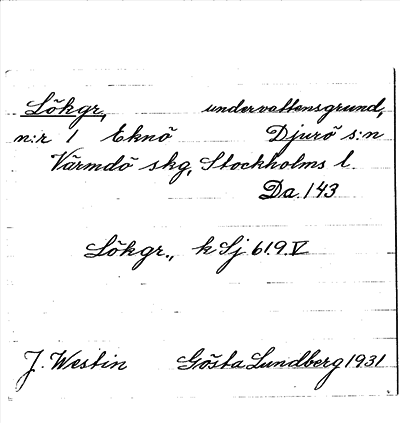 Lökgr, undervattensgrund,
n:r 1 Eknö Djurö s:n
Värmdö skg, Stockholms l.
Da. 143
Lökgr., k Sj 619 V
J. Westin Gösta Lundberg 1931